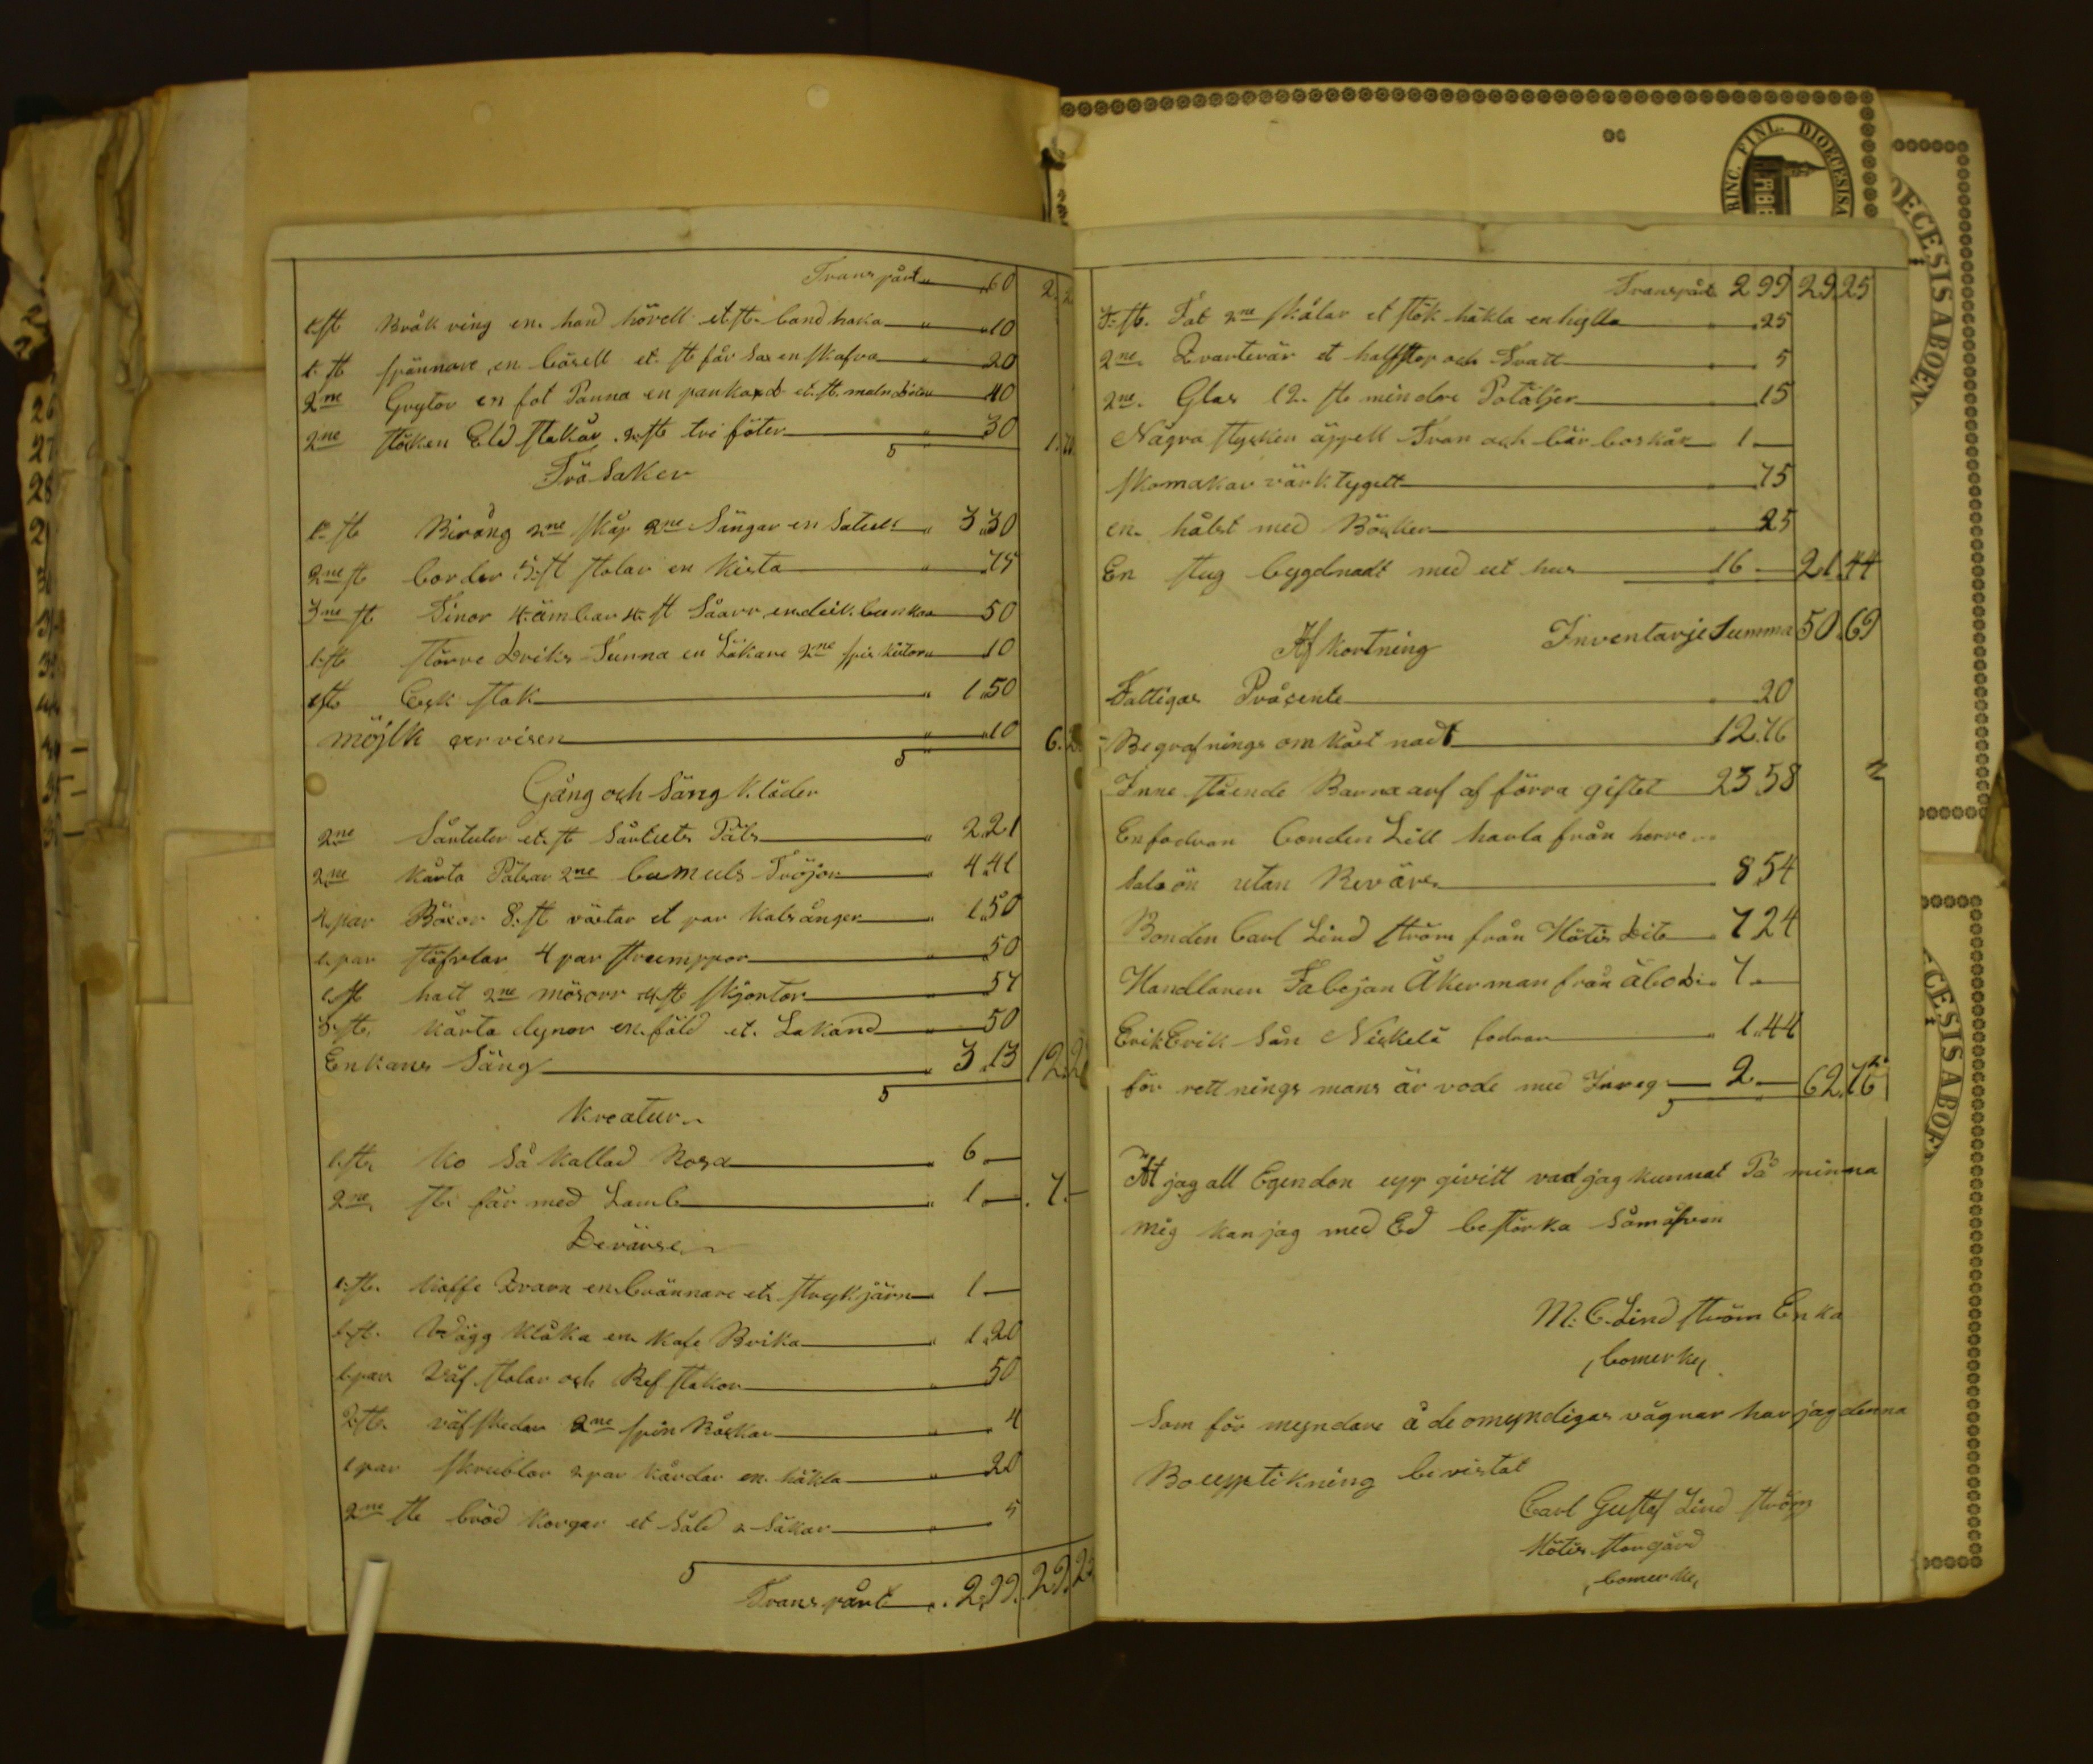 Transpårt " 60 2.
1 st Bråk ring en hand hövell et st. band haka " 10
1 st spännare en båsell et st får Sax en skafva " 20
2ne Grytor en fot Panna en pankaxd et st. 40
2ne stöken Eld stakar 2 st tre föter 30 1.
Trä Saker
1 st Birång 2ne skåp 2ne Sängar en 3 30
2ne st border 5 st stolar en kista 75
3ne st Tinor 4 ämbar 4 st Såarr en deik bunkar 50
1 st större Driks Tunna en Läkare 2ne 10
1 st Byk stak 1 50
möjlk servisen 10 6.
Gång och Säng Kläder
2ne Sårtuter et st Sårtuts Päls 2 21
2ne kårta Pälsar 2ne bumuls Tröjor 4 41
4 par Böxor 8 st västar et par kalsånger 1 50
1 par stöfvlar 4 par strumppor 50
1 st hatt 2ne mösorr 4 st skjortor 57
3 st. kårta dynor en fäld et. Lakand 50
Enkans Säng 3 13 12
Kreatur
1 st. ko Så kallad Rosa 6 —
2ne st. får med Lamb 1 — 7. —
Devärse
1 st. kaffe Kvarn en brännare et strykjärn 1 —
1 st. Vägg klåka en kafe Brika 1 20
1 par Väf stolar och Ref stakor 50
2 st. väfskedar 2ne spin Råckar 4
1 par skrublor 2 par kårdar en häkla 20
2ne st bröd korgar et Såld 2 Säkar 5
Transpårt 2,99. 29.
RINC. FINL. DIOECESISA
OECESISABOEN
Transpårt 2 99 29 25
7 st. Fat 2ne skålar et stök häkla en hylla 25
2ne Kvarterär et halfstop och Tratt 5
2ne. Glas 12. st mindre Potäljer 15
Några stycken äppell Tran och bär boskår 1 —
skomakar värk tygett 75
en. hålst med Böcker 25
En stug bygdnadt med ut hus 16 — 21.44
Inventarje Summa 50.69
Af kortning
Fattigas Pråcente 20
Begrafnings omkåst nadt 12.76
Inne stående Barna arf af förra giftet 23 58
En fodran bonden Lill harla från horre
Salaön utan Revärs 8 54
Bonden Carl Lind ström från Hötis Dito 7 24
Handlaren Fabejan Åkerman från åbo Di 7 —
Erik Erik Sån Niskelä fodran 1.44
för rett nings mans är vode med Inreg 2 — 62.76
At jag all Egendon upp givitt vad jag kunnat På minna
mig kan jag med Ed bestörka Såm åfvan
M. C. Lind ström Enka
bomerke
Som för myndare å de omyndigas vägnar har jag denna
Boupptikning bivistat
Carl Gustaf Lind ström
Hötis storgård
bomerke
CESISABOEN